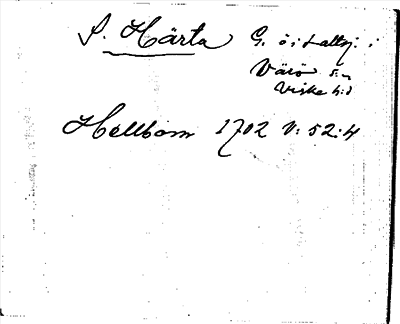 S. Härta G. ö i saltsj. i
Värö s:n
Viske h:d
Hellbom 1702 V: 52:4